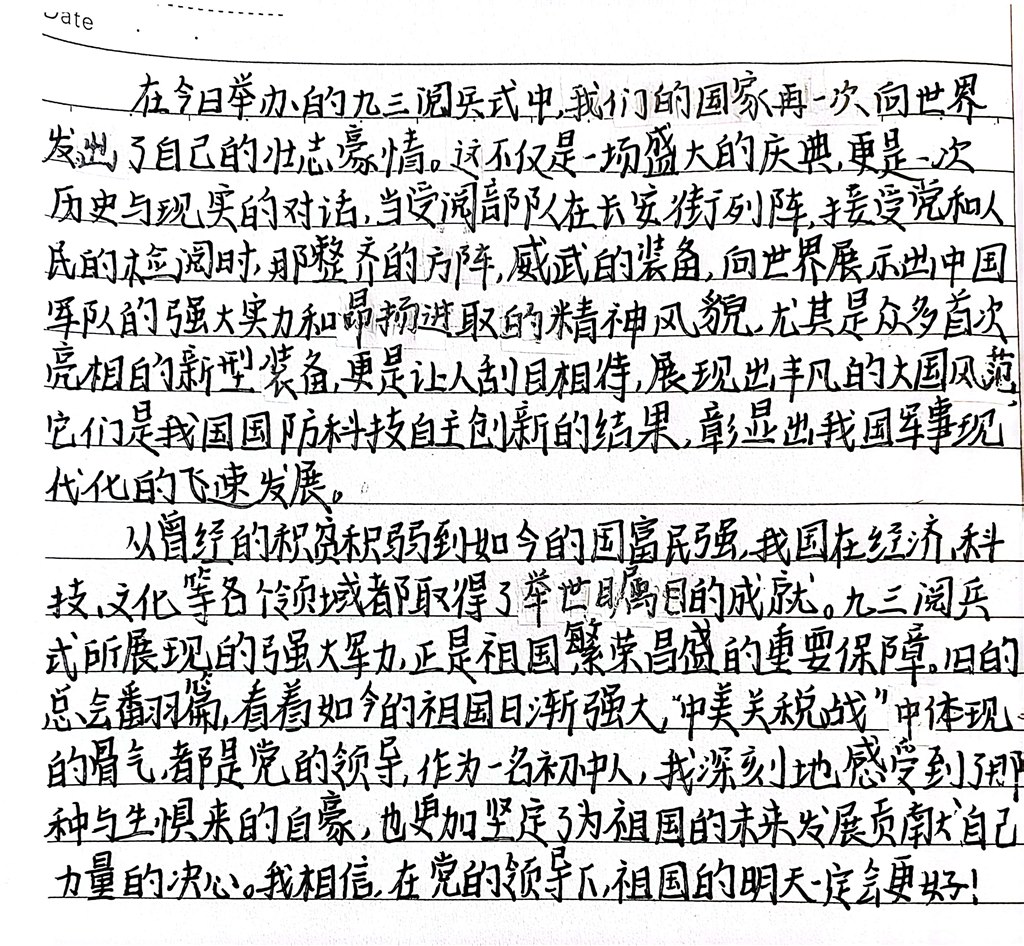 Date
在今日举办的九三阅兵式中,我们的国家再一次向世界
发出了自己的壮志豪情。这不仅是一场盛大的庆典,更是一次
历史与现实的对话,当受阅部队在长安街列阵,接受党和人
民的检阅时,那整齐的方阵,威武的装备,向世界展示出中国
军队的强大实力和昂扬进取的精神风貌,尤其是众多首次
亮相的新型装备,更是让人刮目相待,展现出丰凡的大国风范,
它们是我国国防科技自主创新的结果,彰显出我国军事现
代化的飞速发展。
从曾经的积贫积弱到如今的国富民强,我国在经济、科
技、文化等各个领域都取得了举世瞩目的成就。九三阅兵
式所展现的强大军力,正是祖国繁荣昌盛的重要保障。旧的
总会翻篇,看着如今的祖国日渐强大,“中美关税战”中体现
的骨气,都是党的领导,作为一名初中人,我深刻地感受到了那
种与生惧来的自豪,也更加坚定了为祖国的未来发展贡献自己
力量的决心。我相信,在党的领导下,祖国的明天一定会更好!